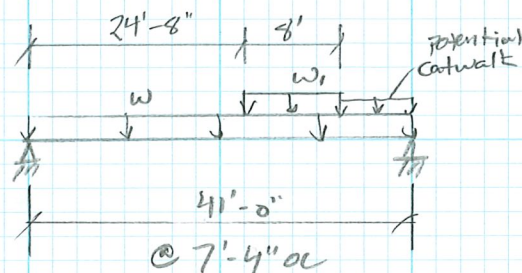 24'-8" 8'
potential
catwalk
w w₁
41'-0"
@ 7'-4" oc